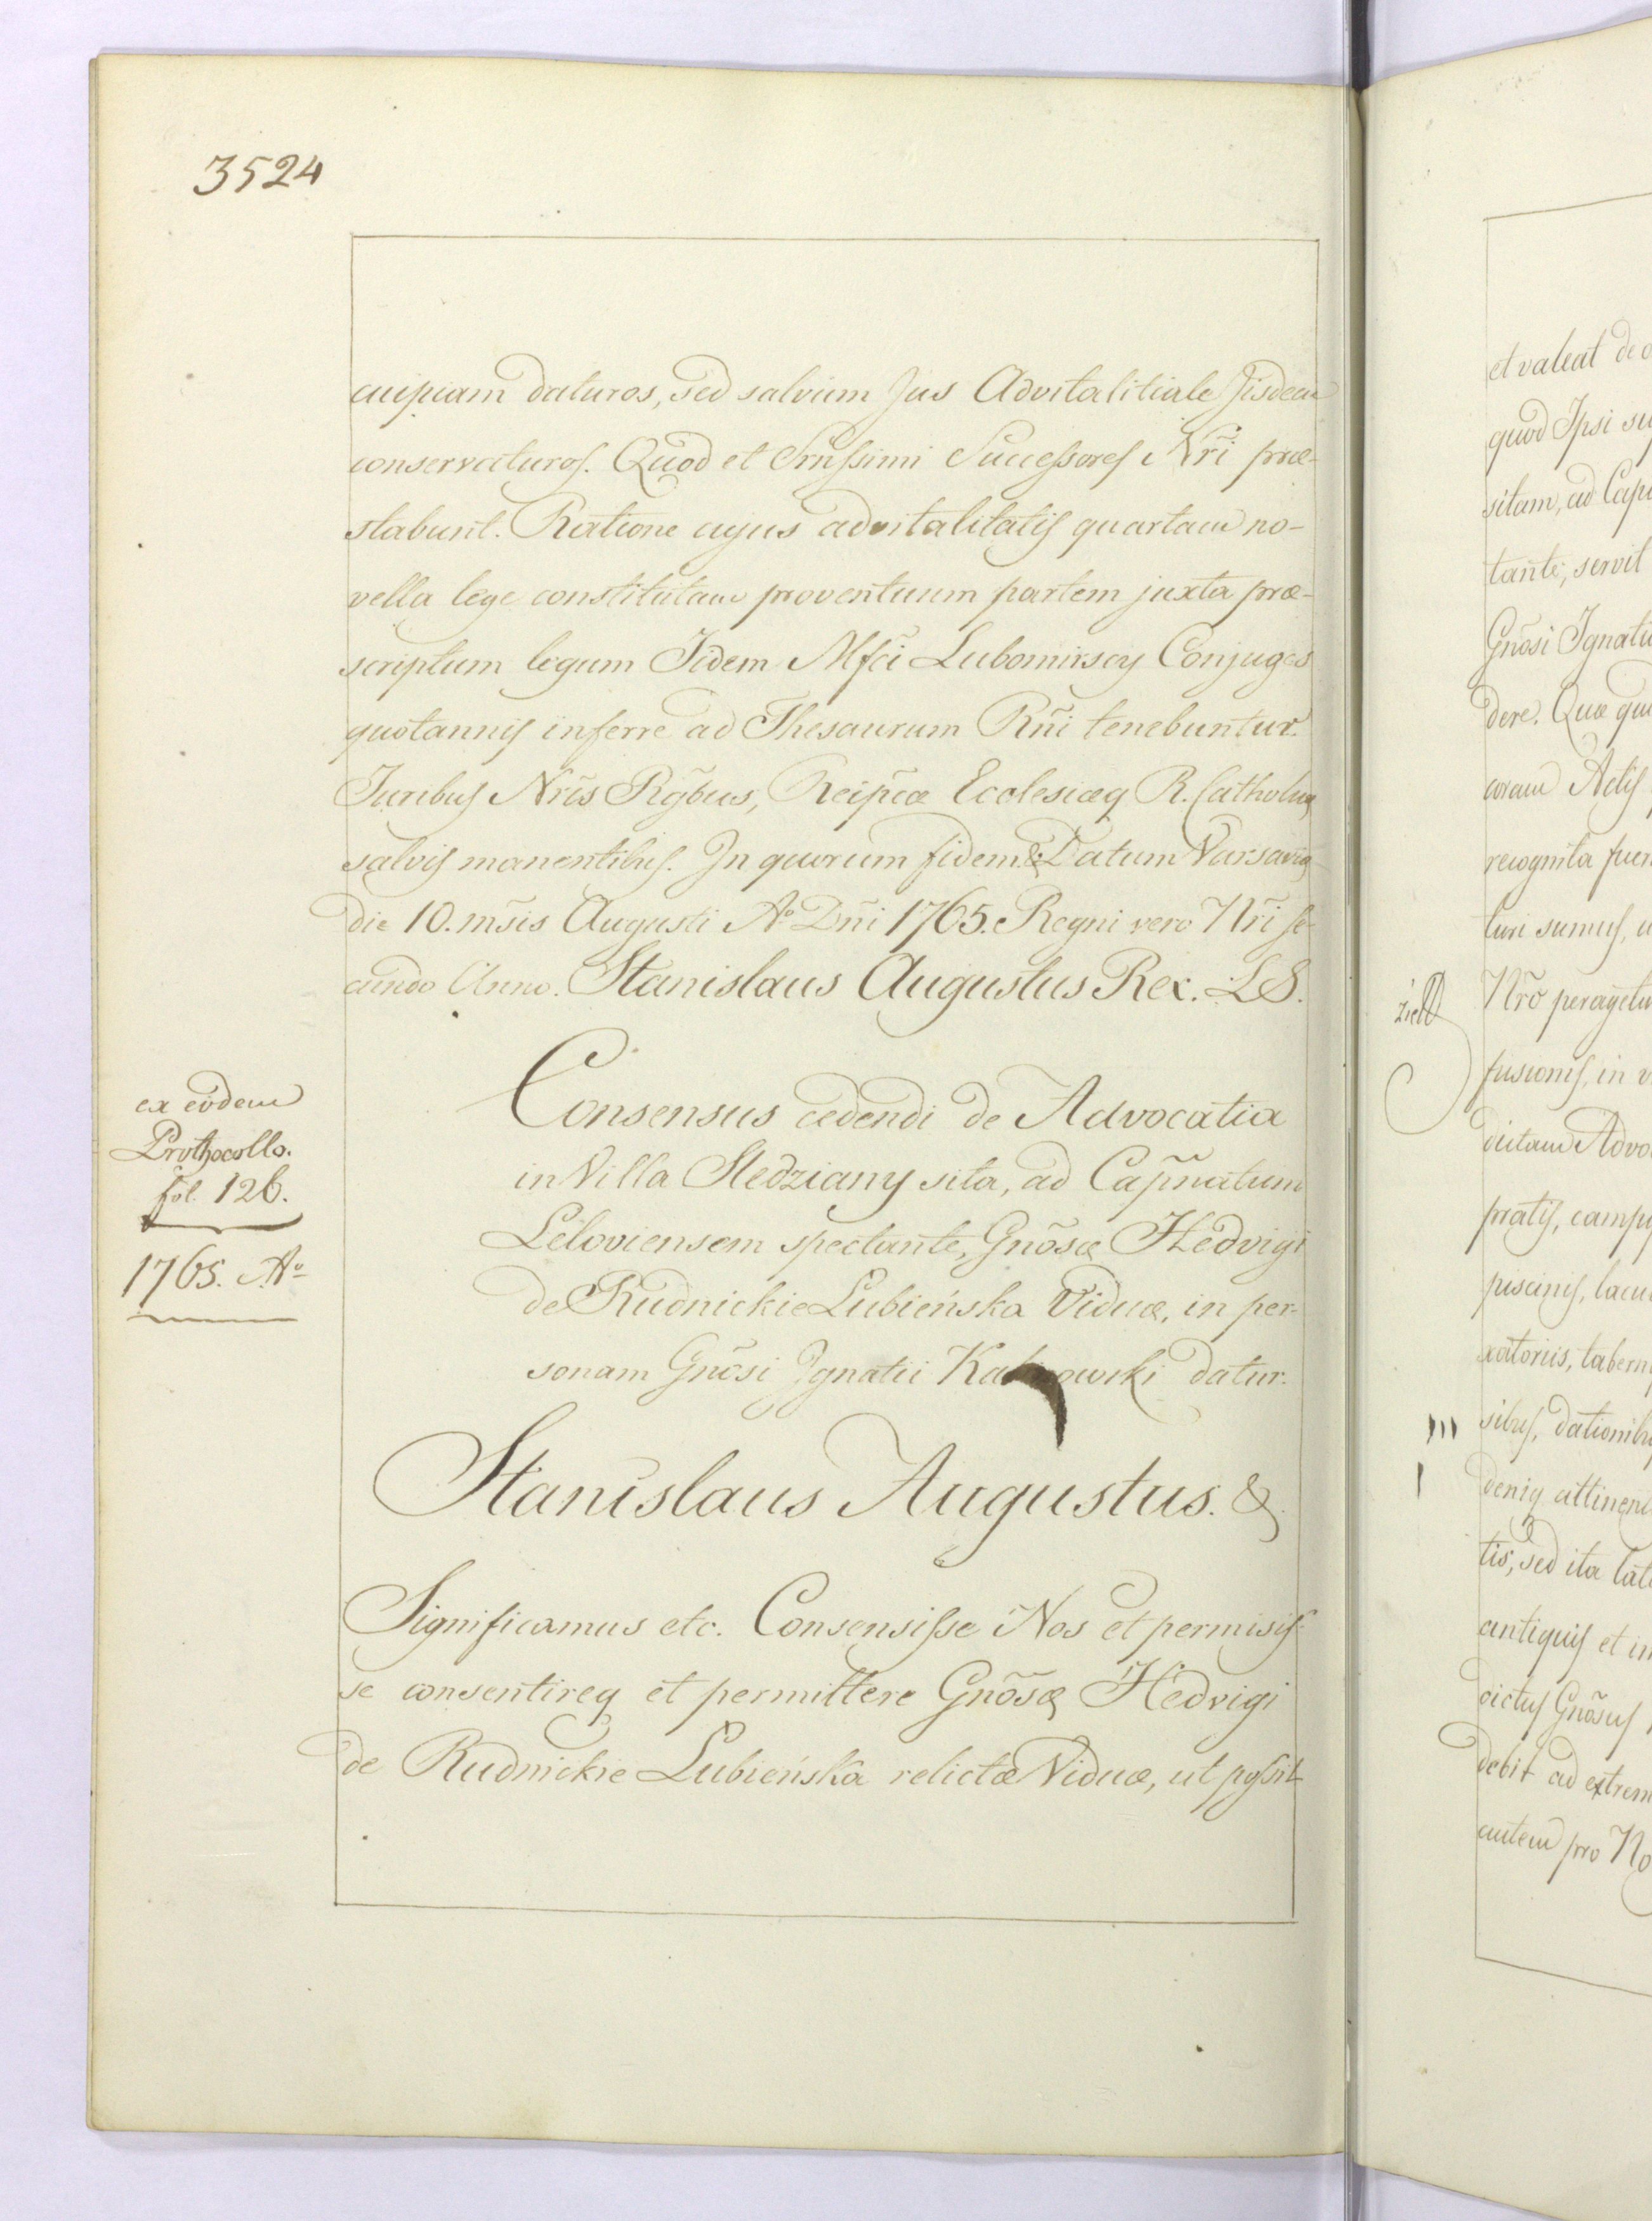 3524
cuipiam daturos, sed salvum Jus Advitalitiale Jisdem
conservaturos. Quod et Srñssimi Successores Nr̃i præ-
stabunt. Ratione cujus advitalitatis quartam no-
vella lege constitutam proventuum partem juxta præ-
scriptum legum Jidem Mfci Lubomirscy Conjuges
quotannis inferre ad Thesaurum Rñi tenebuntur.
Juribus Nrĩs Rg̃bus, Reipcæ Ecclesiæq R. Catholicæ
salvis manentibus. In quorum fidem & Datum Varsaviæ
die 10. mẽis Augusti Aº Dñi 1765. Regni vero Nr̃i se-
cundo Anno. Stanislaus Augustus Rex. LS.
ex eodem
Prothocollo.
fol. 126.
1765. Aº
Consensus cedendi de Advocatia
in Villa Sledziany sita, ad Capñatum
Leloviensem spectante, Gnõsæ Hedvigi
de Rudnickie Lubieńska Viduæ, in per-
sonam Gnõsi Ignatii datur.
Stanislaus Augustus. &
Significamus etc. Consensisse Nos et permisis-
se consentireq et permittere Gnõsæ Hedvigi
de Rudnickie Lubieńska relictæ Viduæ, ut possit
et valeat de
quod Ipsi
sitam, ad
tante, servit
Gnõsi
dere. Quæ
coram Actis
recognita
turi sumus,
Nrõ
fusionis, in
dictam
pratis,
piscinis,
sibus,
deniq
tis, sed ita
antiquis et
dictus Gnõsus
debit ad
autem pro